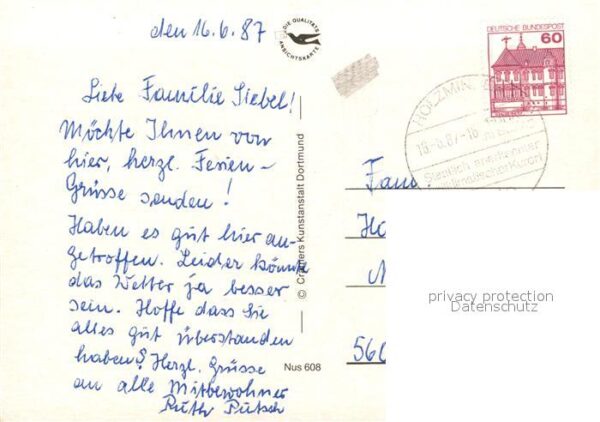 den 16.6.87
Liebe Familie Siebel!
Möchte Ihnen von
hier, herzl. Ferien-
Grüsse senden!
Haben es gut hier an-
getroffen. Leider könnte
das Wetter ja besser
sein. Hoffe dass Sie
alles gut überstanden
haben? Herzl. Grüsse
an alle Mitbewohner
Ruth Putsch
DIE QUALITÄTS
ANSICHTSKARTE
© Cramers Kunstanstalt Dortmund
Nus 608
DEUTSCHE BUNDESPOST
60
HOLZMIN
16.-6.87-18
Staatlich anerkannter
Kurort
Fam.
Ho
560
privacy protection
Datenschutz